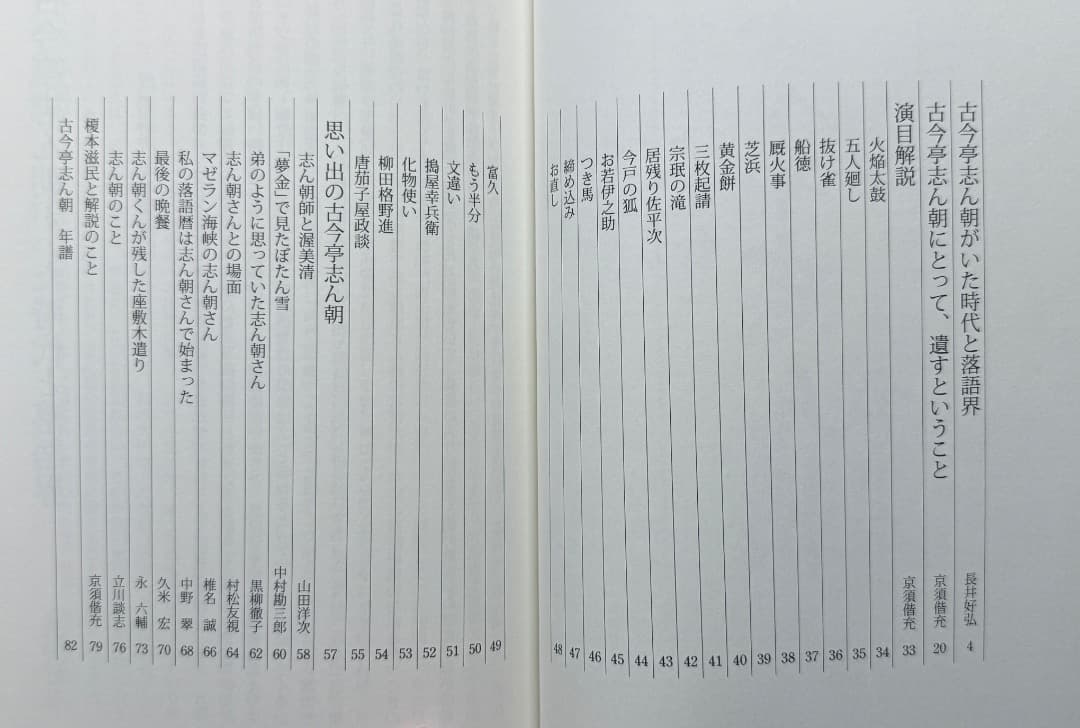 古今亭志ん朝がいた時代と落語界 長井好弘 4
古今亭志ん朝にとって、遺すということ 京須偕充 20
演目解説 京須偕充 33
火焔太鼓 34
五人廻し 35
抜け雀 36
船徳 37
厩火事 38
芝浜 39
黄金餅 40
三枚起請 41
宗珉の滝 42
居残り佐平次 43
今戸の狐 44
お若伊之助 45
つき馬 46
締め込み 47
お直し 48
富久 49
もう半分 50
文違い 51
搗屋幸兵衛 52
化物使い 53
柳田格野進 54
唐茄子屋政談 55
思い出の古今亭志ん朝 57
志ん朝師と渥美清 山田洋次 58
「夢金」で見たぼたん雪 中村勘三郎 60
弟のように思っていた志ん朝さん 黒柳徹子 62
志ん朝さんとの場面 村松友視 64
マゼラン海峡の志ん朝さん 椎名 誠 66
私の落語暦は志ん朝さんで始まった 中野 翠 68
最後の晩餐 久米 宏 70
志ん朝くんが残した座敷木遣り 永 六輔 73
志ん朝のこと 立川談志 76
榎本滋民と解説のこと 京須偕充 79
古今亭志ん朝 年譜 82